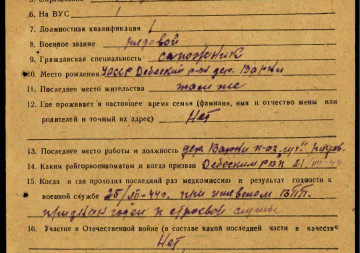 6. На ВУС 1
7. Должностная квалификация
8. Военное звание рядовой
9. Гражданская специальность сапожник
10. Место рождения УАССР Дебеский р-он дер. Варни
11. Последнее место жительства там же
12. Где проживает в настоящее время семья (фамилия, имя и отчество жены или
родителей и точный их адрес) Нет
13. Последнее место работы и должность дер Варни к-оз
14. Каким райгорвоенкоматом и когда призван Дебеским РВК 21/VII-44
15. Когда и где проходил последний раз медкомиссию и результат годности к
военной службе 25/VII-44г. при ижевском ВПП.
признан годен к строевой службы
16. Участие в Отечественной войне (в составе какой последней части в качестве
Нет